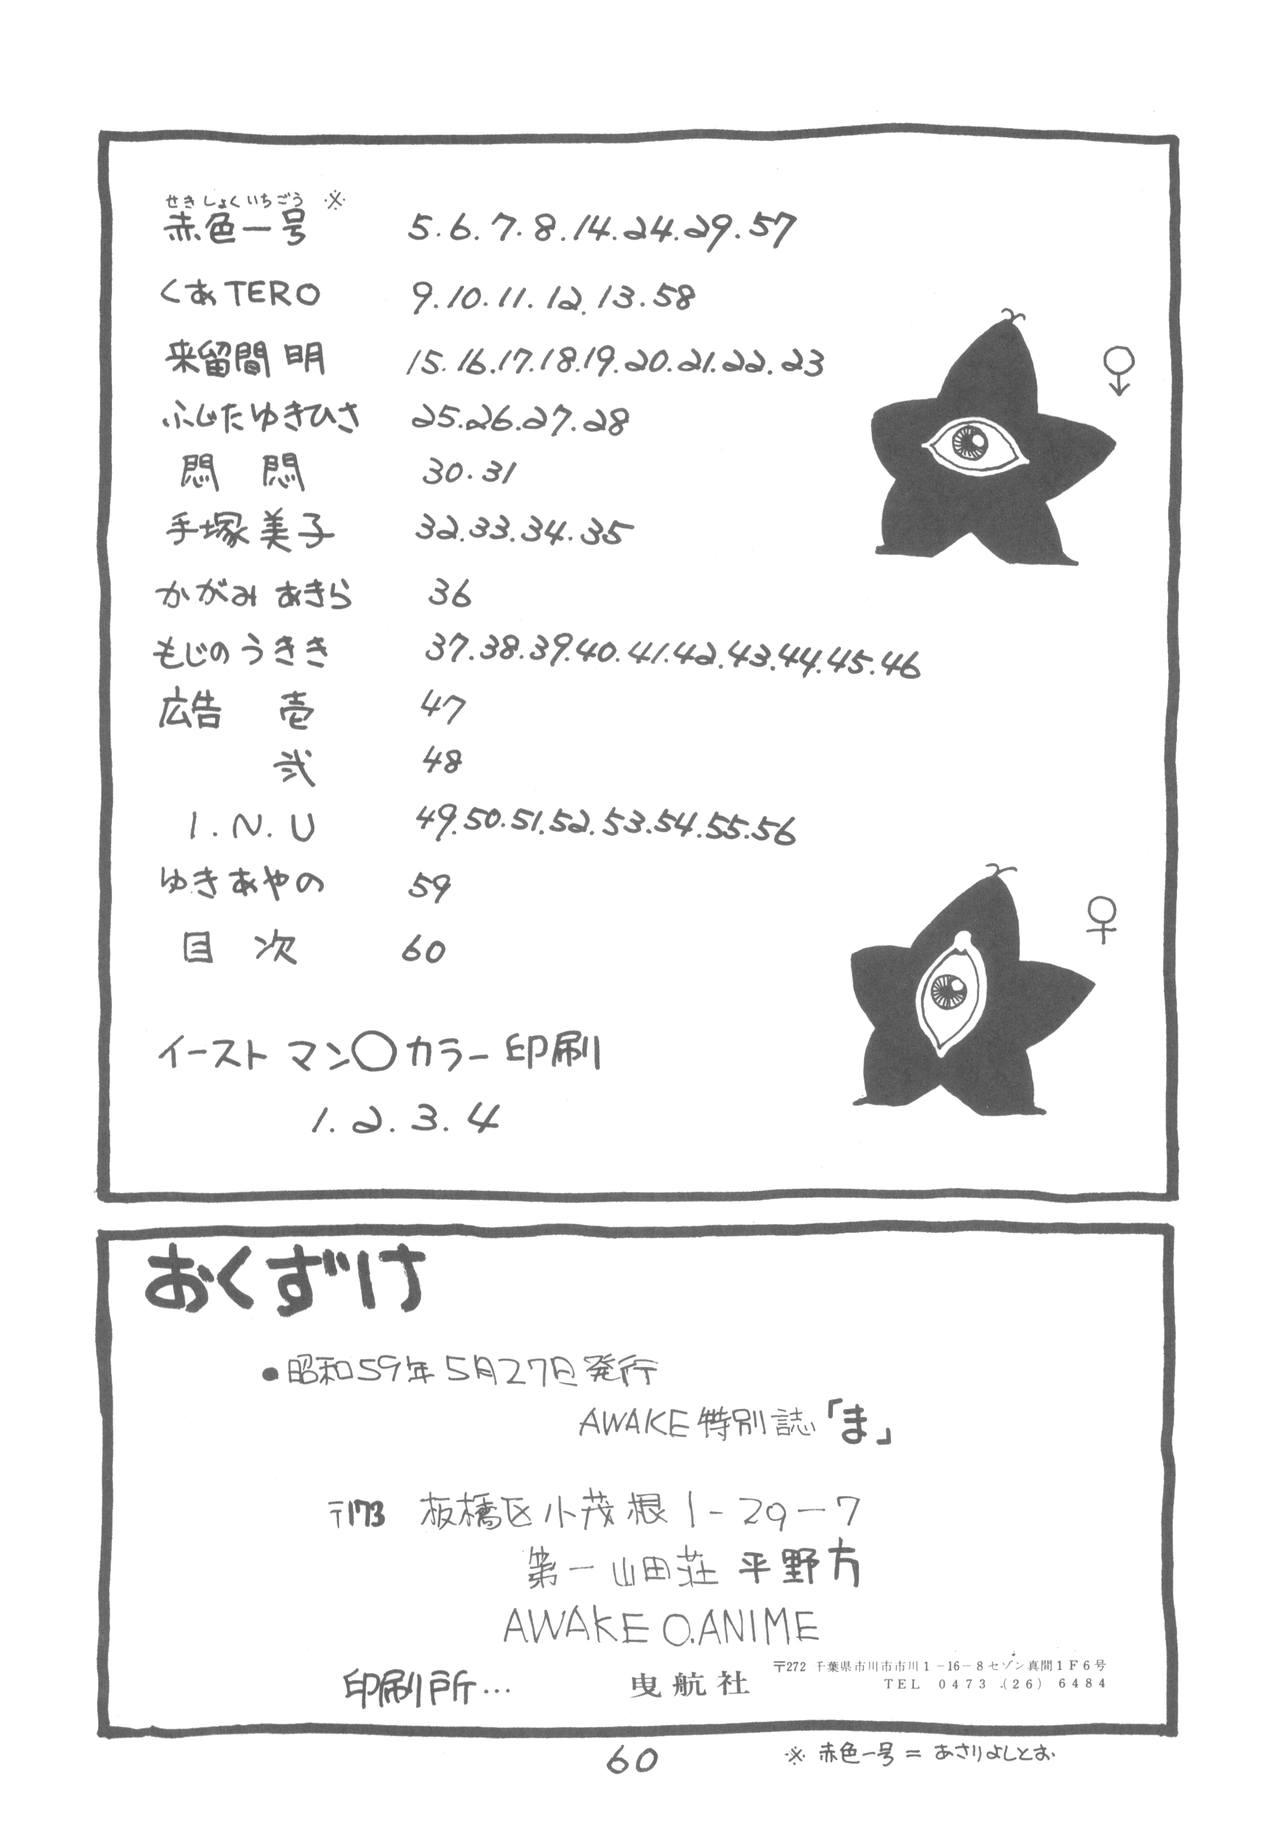 せきしょくいちごう ※
赤色一号 5.6.7.8.14.24.29.57
くあTERO 9.10.11.12.13.58
来留間 明 15.16.17.18.19.20.21.22.23
ふじたゆきひさ 25.26.27.28
悶 悶 30.31
手塚美子 32.33.34.35
かがみあきら 36
もじのうきき 37.38.39.40.41.42.43.44.45.46
広告 壱 47
弐 48
I.N.U 49.50.51.52.53.54.55.56
ゆきあやの 59
目 次 60
イーストマン○カラー印刷
1.2.3.4
♂
♀
おくずけ
●昭和59年5月27日発行
AWAKE特別誌「ま」
〒173 板橋区小茂根1-29-7
第一山田荘 平野方
AWAKE O.ANIME
印刷所… 曳航社 〒272 千葉県市川市市川1-16-8セゾン真間1F6号
TEL 0473.(26) 6484
60
※ 赤色一号 = あさりよしとお